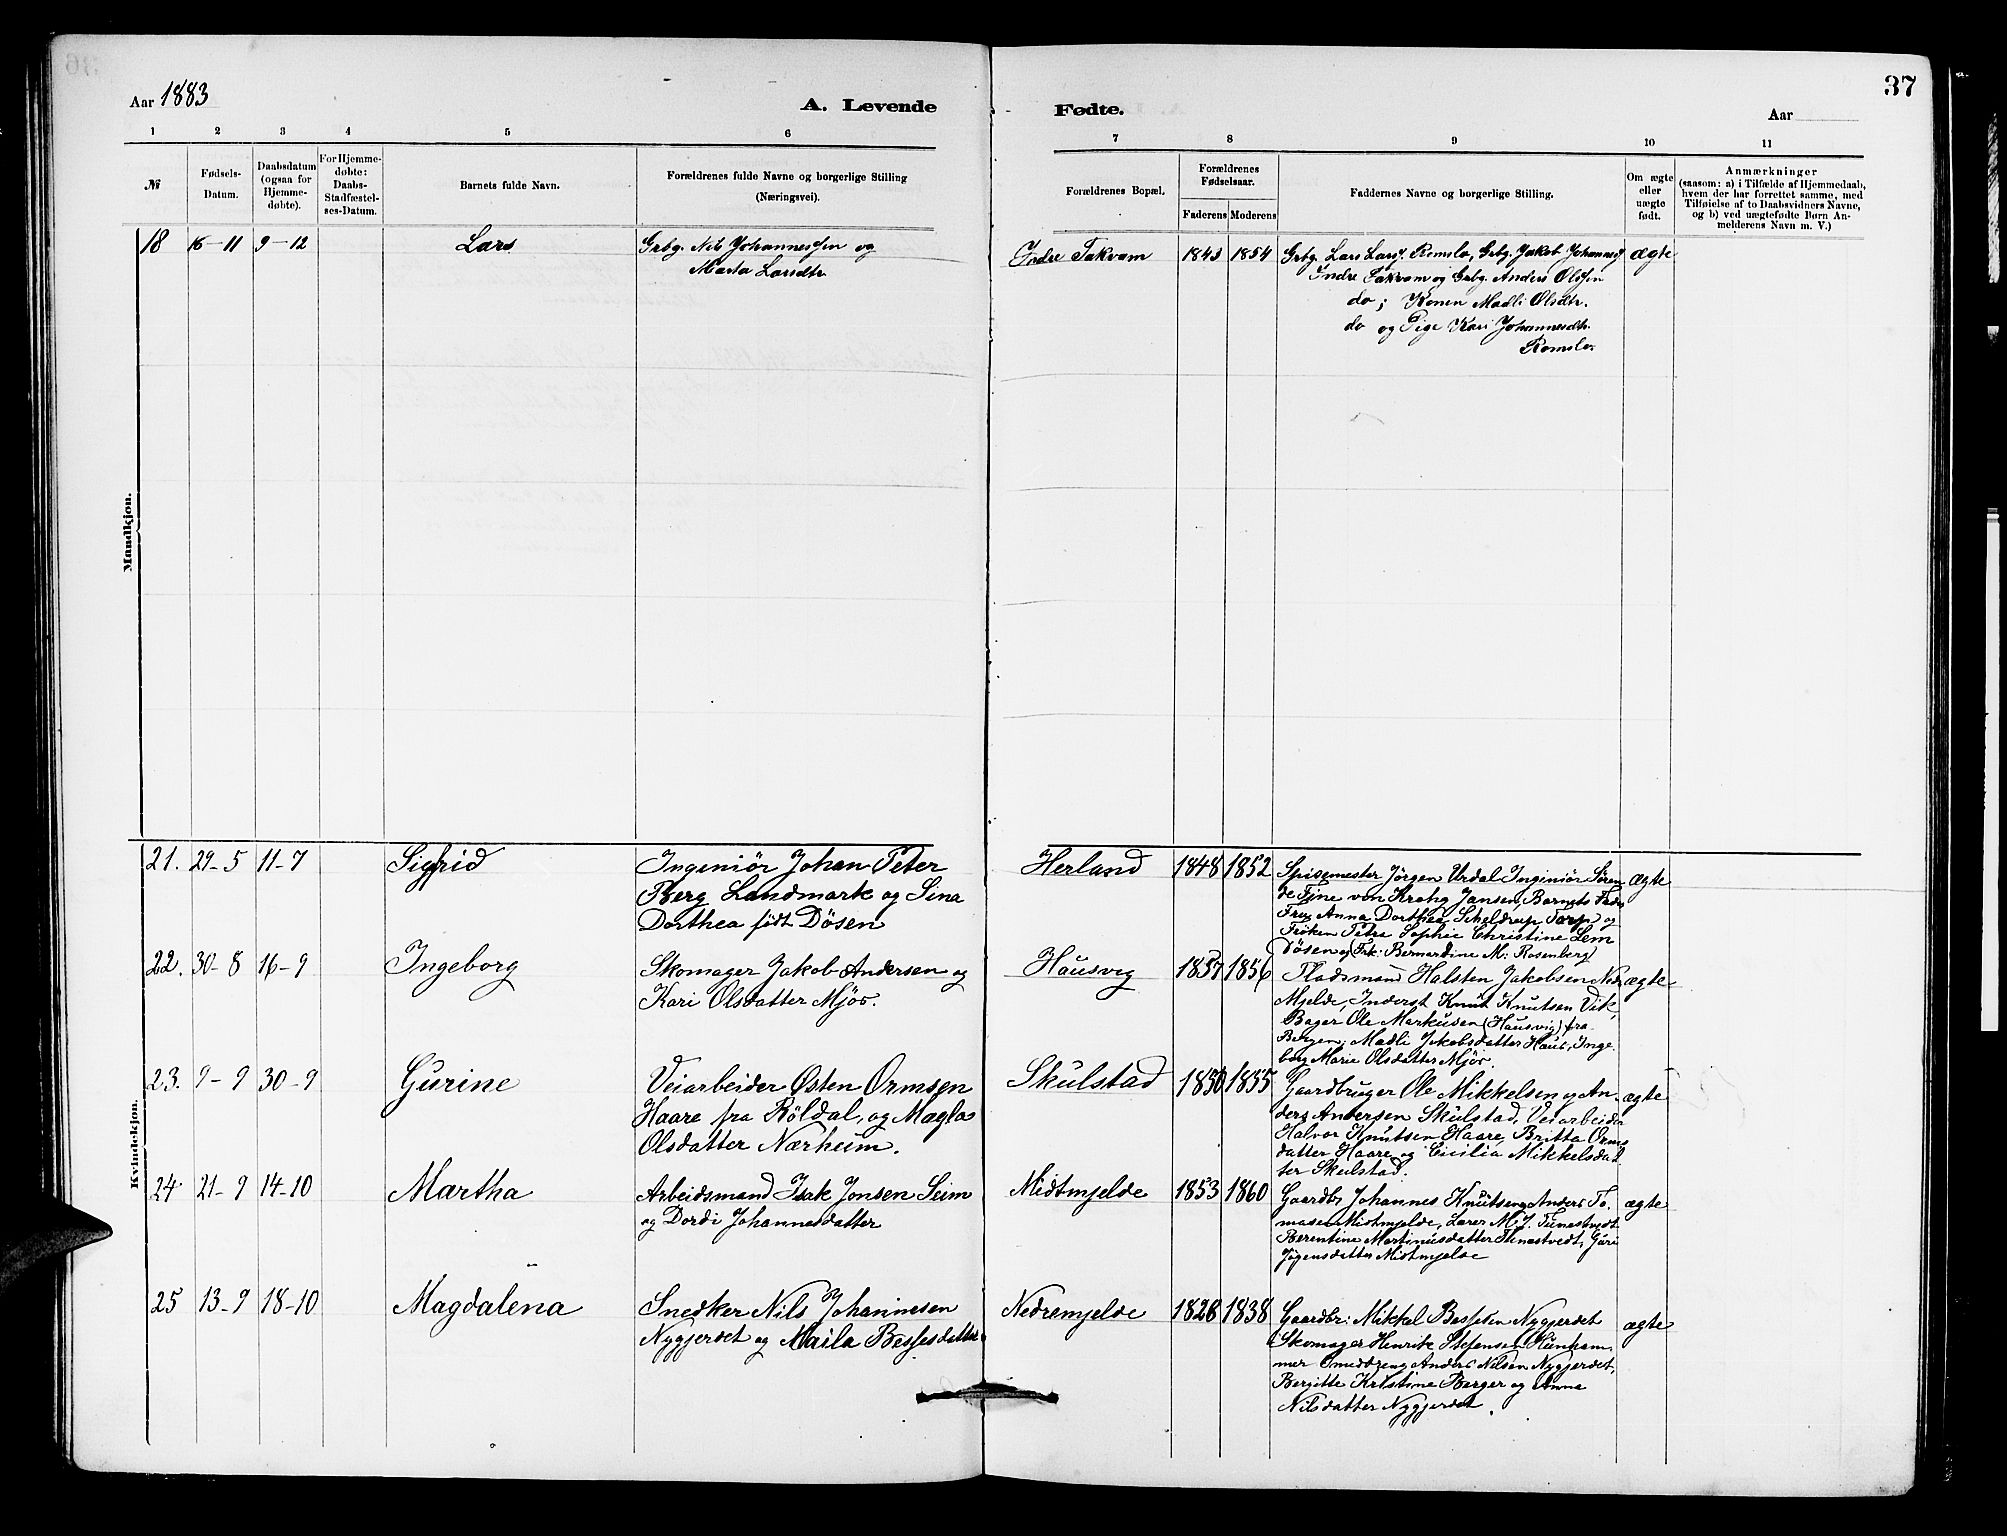 37
Aar 1883
A. Levende
Fødte.
Aar
1 2 3 4 5 6 7 8 9 10 11
№
Fødsels-
Datum.
Daabsdatum
(ogsaa for
Hjemme-
døbte).
For Hjemme-
døbte:
Daabs-
Stadfæstel-
ses-Datum.
Barnets fulde Navn.
Forældrenes fulde Navne og borgerlige Stilling
(Næringsvei).
Forældrenes Bopæl.
Forældrenes
Fødselsaar.
Faderens Moderens
Faddernes Navne og borgerlige Stilling.
Om ægte
eller
uægte
født.
Anmærkninger
(saasom: a) i Tilfælde af Hjemmedaab,
hvem der har forrettet samme, med
Tilføielse af to Daabsvidners Navne,
og b) ved uægtefødte Børn An-
melderens Navn m. V.)
Mandkjøn.
18 16-11 9-12 Lars
Grbg. Nils Johannessen og
Marta Larsdtr
Indre Takvam 1843 1854
Grbg. Lars Larss. Romslo, Grbg. Jakob Johanness
Indre Takvam og Grbg. Anders Olssen
do; Konen Madli Olsdtr.
do og Pige Kari Johannesdtr.
Romslo.
ægte
Kvindekjøn.
21. 29-5 11-7 Sigfrid
Ingeniør Johan Peter
Berg Landmark og Sina
Dorthea født Døsen
Herland 1848 1852
Spisemester Jørgen Urdal Inginiør Søren
de Fine von Krohg Jansen, Barnets Fader
Fru Anna Dorthea Scheldrup Torp og
Frøken Petra Sophie Christine Lem
Døsen og Frk: Bernardine M: Rosenberg
Ægte
22. 30-8 16-9 Ingeborg
Skomager Jakob Andersen og
Kari Olsdatter Mjøs.
Hausvig 1857 1856
Pladsmand Halsten Jakobsen Ned
Mjelde, Inderst Knut Knutsen Vik,
Bager Ole Markusen (Hausvig) fra
Bergen; Madli Jakobsdatter Haus, Inge
borg Marie Olsdatter Mjøs.
ægte
23. 9-9 30-9 Gurine
Veiarbeider Østen Ormsen
Haare fra Røldal, og Magla
Olsdatter Nærheim.
Skulstad 1850 1855
Gaardbruger Ole Mikkelsen og An-
ders Andersen Skulstad, Veiarbeider
Halvor Knutsen Haare, Britta Orms
datter Haare og Cicilia Mikkelsdat
ter Skulstad.
ægte
24 21-9 14-10 Martha
Arbeidsmand Isak Jonsen Seim
og Dordi Johannesdatter
Midtmjelde 1853 1860
Gaardbr Johannes Knutsen, Anders To.
masen Midtmjelde, Lærer M. J. Tunestvedt
Berentine Martinusdatter Tunestvedt, Guri
Jøgensdatter Midtmjelde
ægte
25 13-9 18-10 Magdalena
Snedker Nils Johannesen
Nygjerdet og Maila Bessesdatter
Nedremjelde 1828 1838
Gaardbr: Mikkel Bessesen Nygjerdet
Skomager Henrik Stefensen Hunham
mer Smeddreng Anders Nilsen Nygjerdet,
Bergitte Kristine Berger og Anna
Nilsdatter Nygjerdet.
ægte